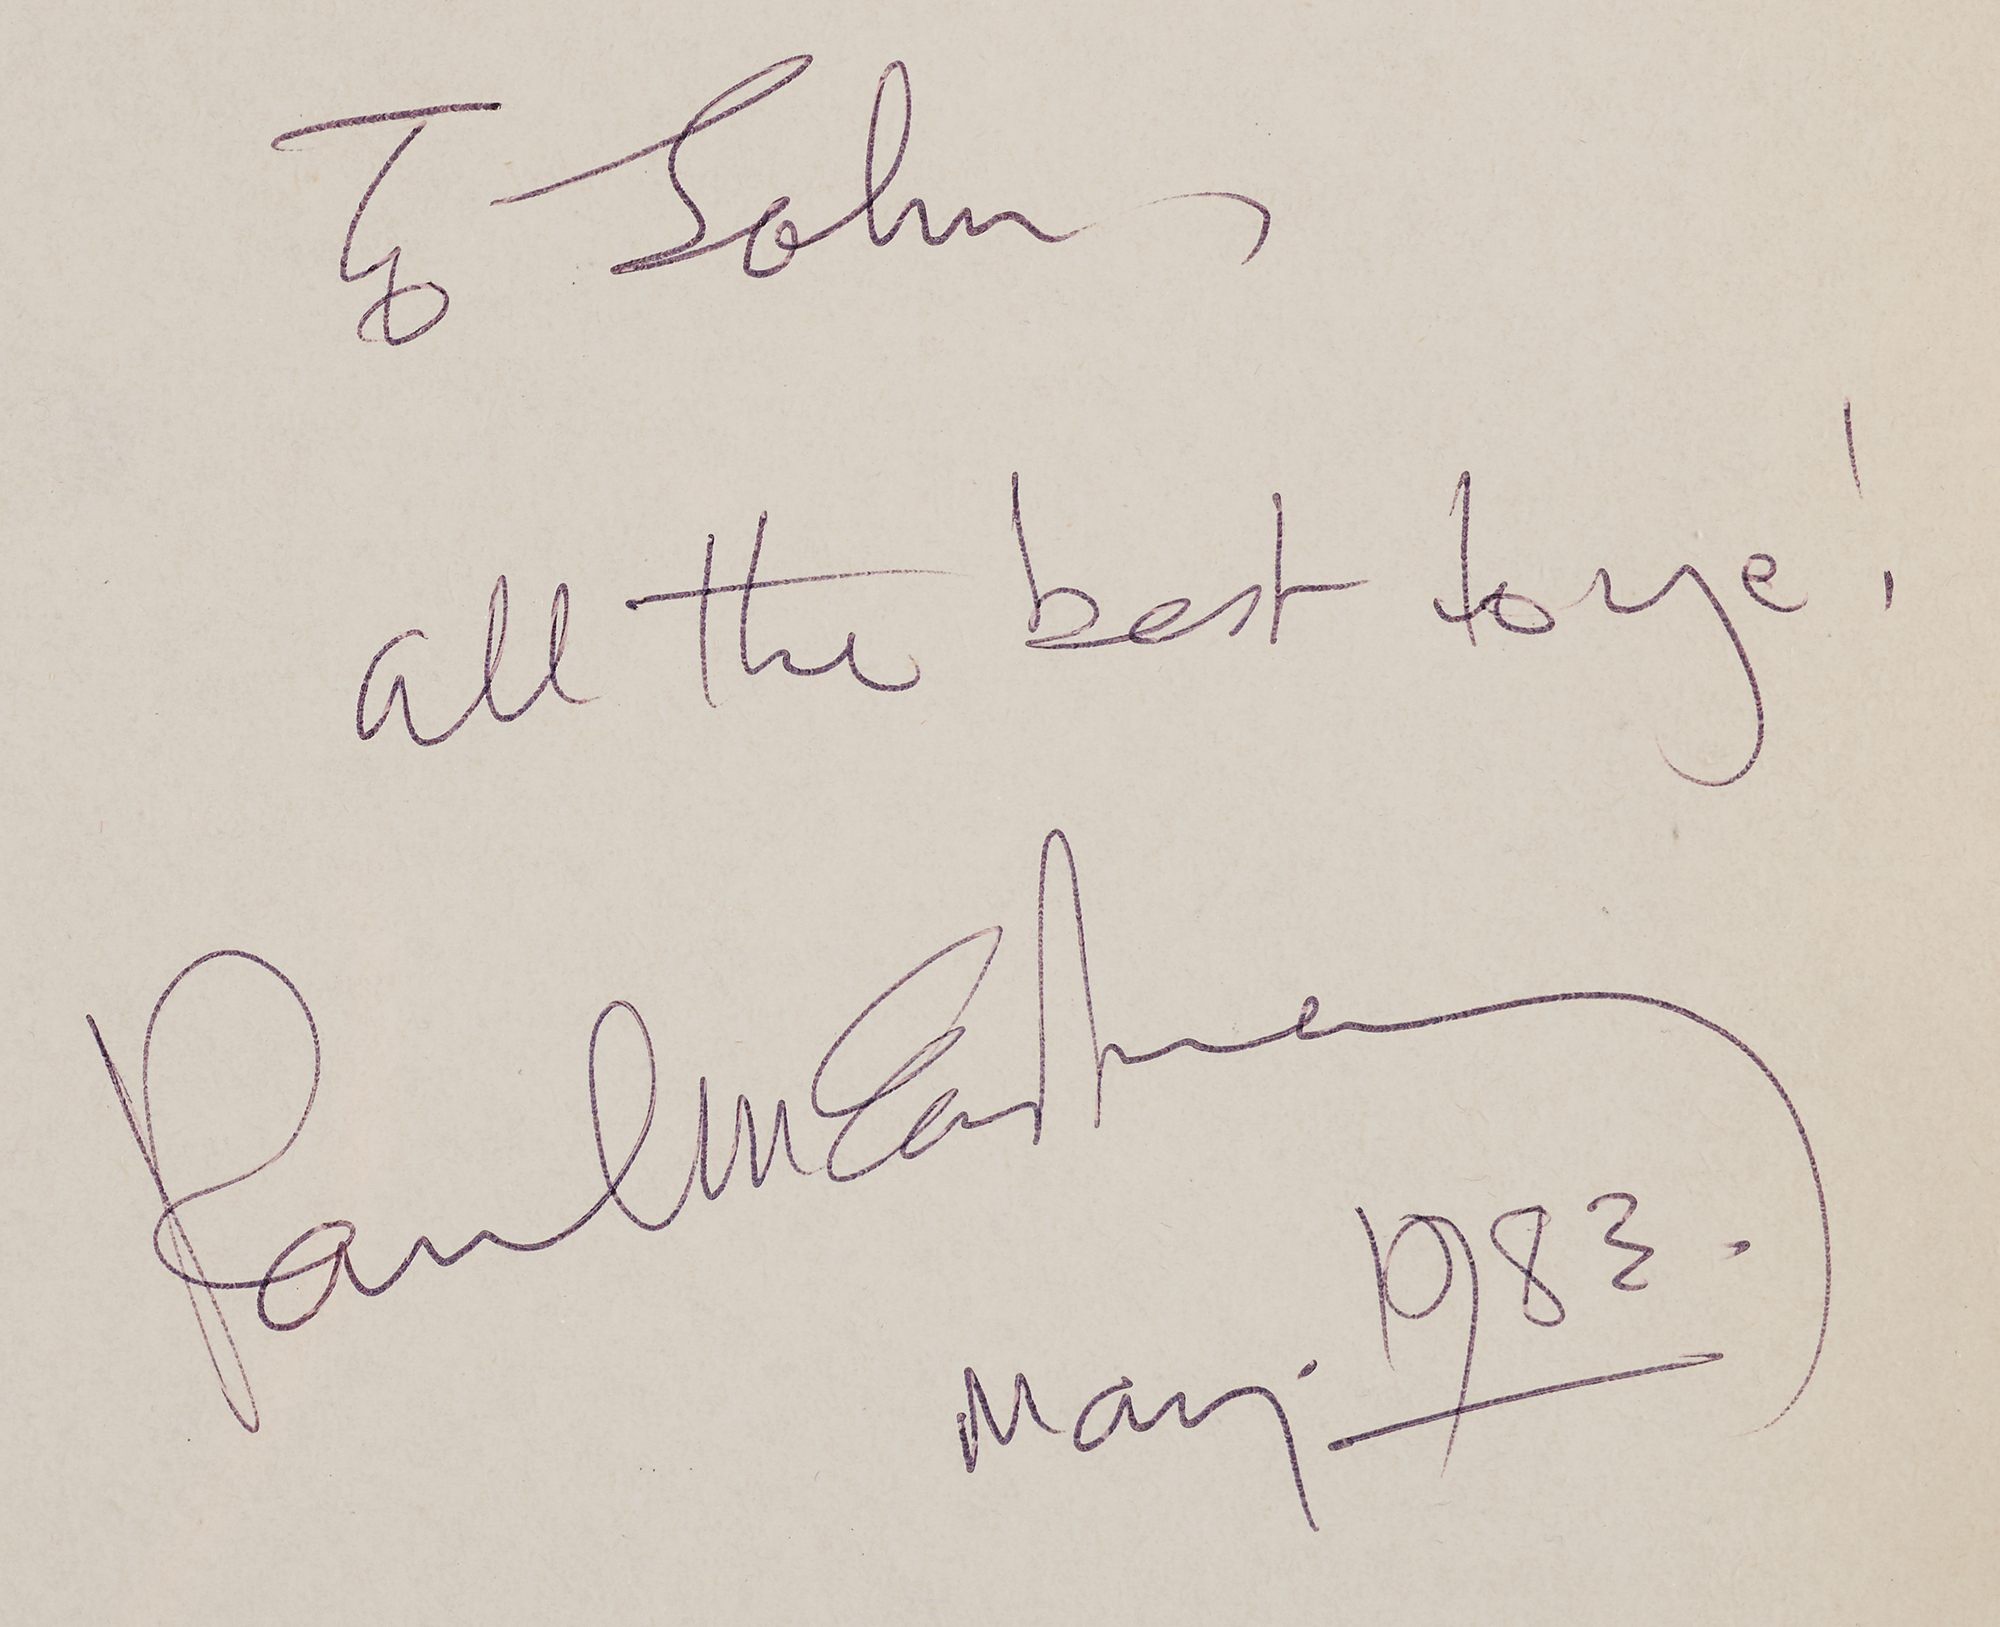 To John,
all the best to ye!
Paul McCartney
May. 1983.